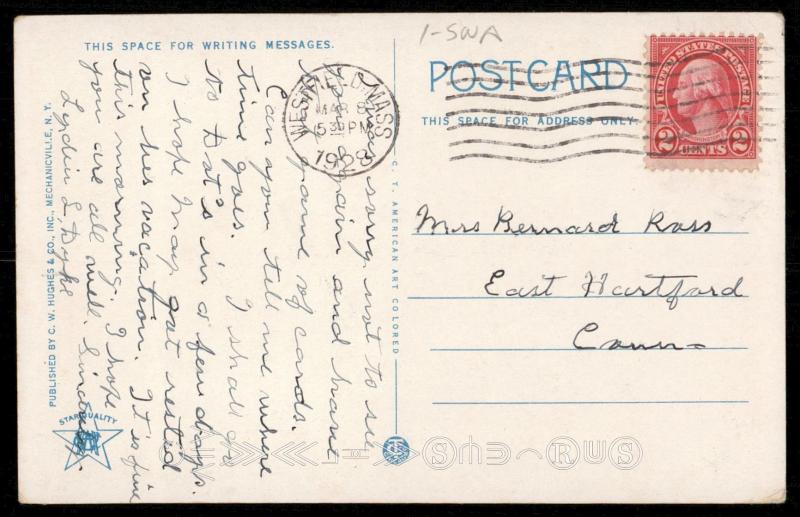 1-SWA
THIS SPACE FOR WRITING MESSAGES.
POSTCARD
THIS SPACE FOR ADDRESS ONLY.
UNITED STATES POSTAGE
2 CENTS 2
WESTFIELD, MASS
MAR 8
530 PM
1928
Mrs Bernard Ross
East Hartford
Conn-
I was sorry not to see
you again and have
a game of cards.
Can you tell me where
time goes. I shall go
to Dat's in a few days.
I hope May got rested
on her vacation. It's fine
this morning. I hope
you are all well. Sincerely,
Lydia L. Dyke
PUBLISHED BY C. W. HUGHES & CO., INC., MECHANICVILLE, N. Y.
C. T. AMERICAN ART COLORED
STAR QUALITY